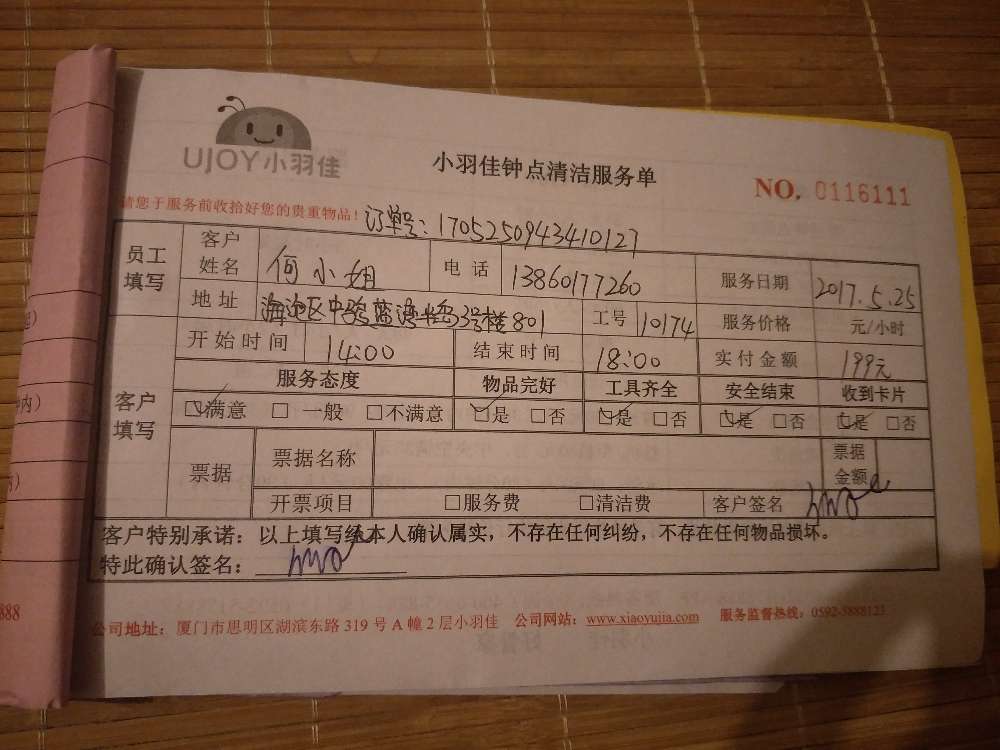 UJOY小羽佳
小羽佳钟点清洁服务单
NO. 0116111
请您于服务前收拾好您的贵重物品！ 订单号：1705250943410127
员工填写 客户姓名 何小姐 电话 13860177260 服务日期 2017.5.25
地址 海沧区中骏蓝湾 3号楼801 工号 10174 服务价格 元/小时
开始时间 14:00 结束时间 18:00 实付金额 199元
客户填写 服务态度 物品完好 工具齐全 安全结束 收到卡片
☑满意 □一般 □不满意 ☑是 □否 ☑是 □否 ☑是 □否 ☑是 □否
票据 票据名称 票据金额
开票项目 □服务费 □清洁费 客户签名
客户特别承诺：以上填写经本人确认属实，不存在任何纠纷，不存在任何物品损坏。
特此确认签名：
公司地址：厦门市思明区湖滨东路319号A幢2层小羽佳 公司网站：www.xiaoyujia.com 服务监督热线：0592-5888123
888